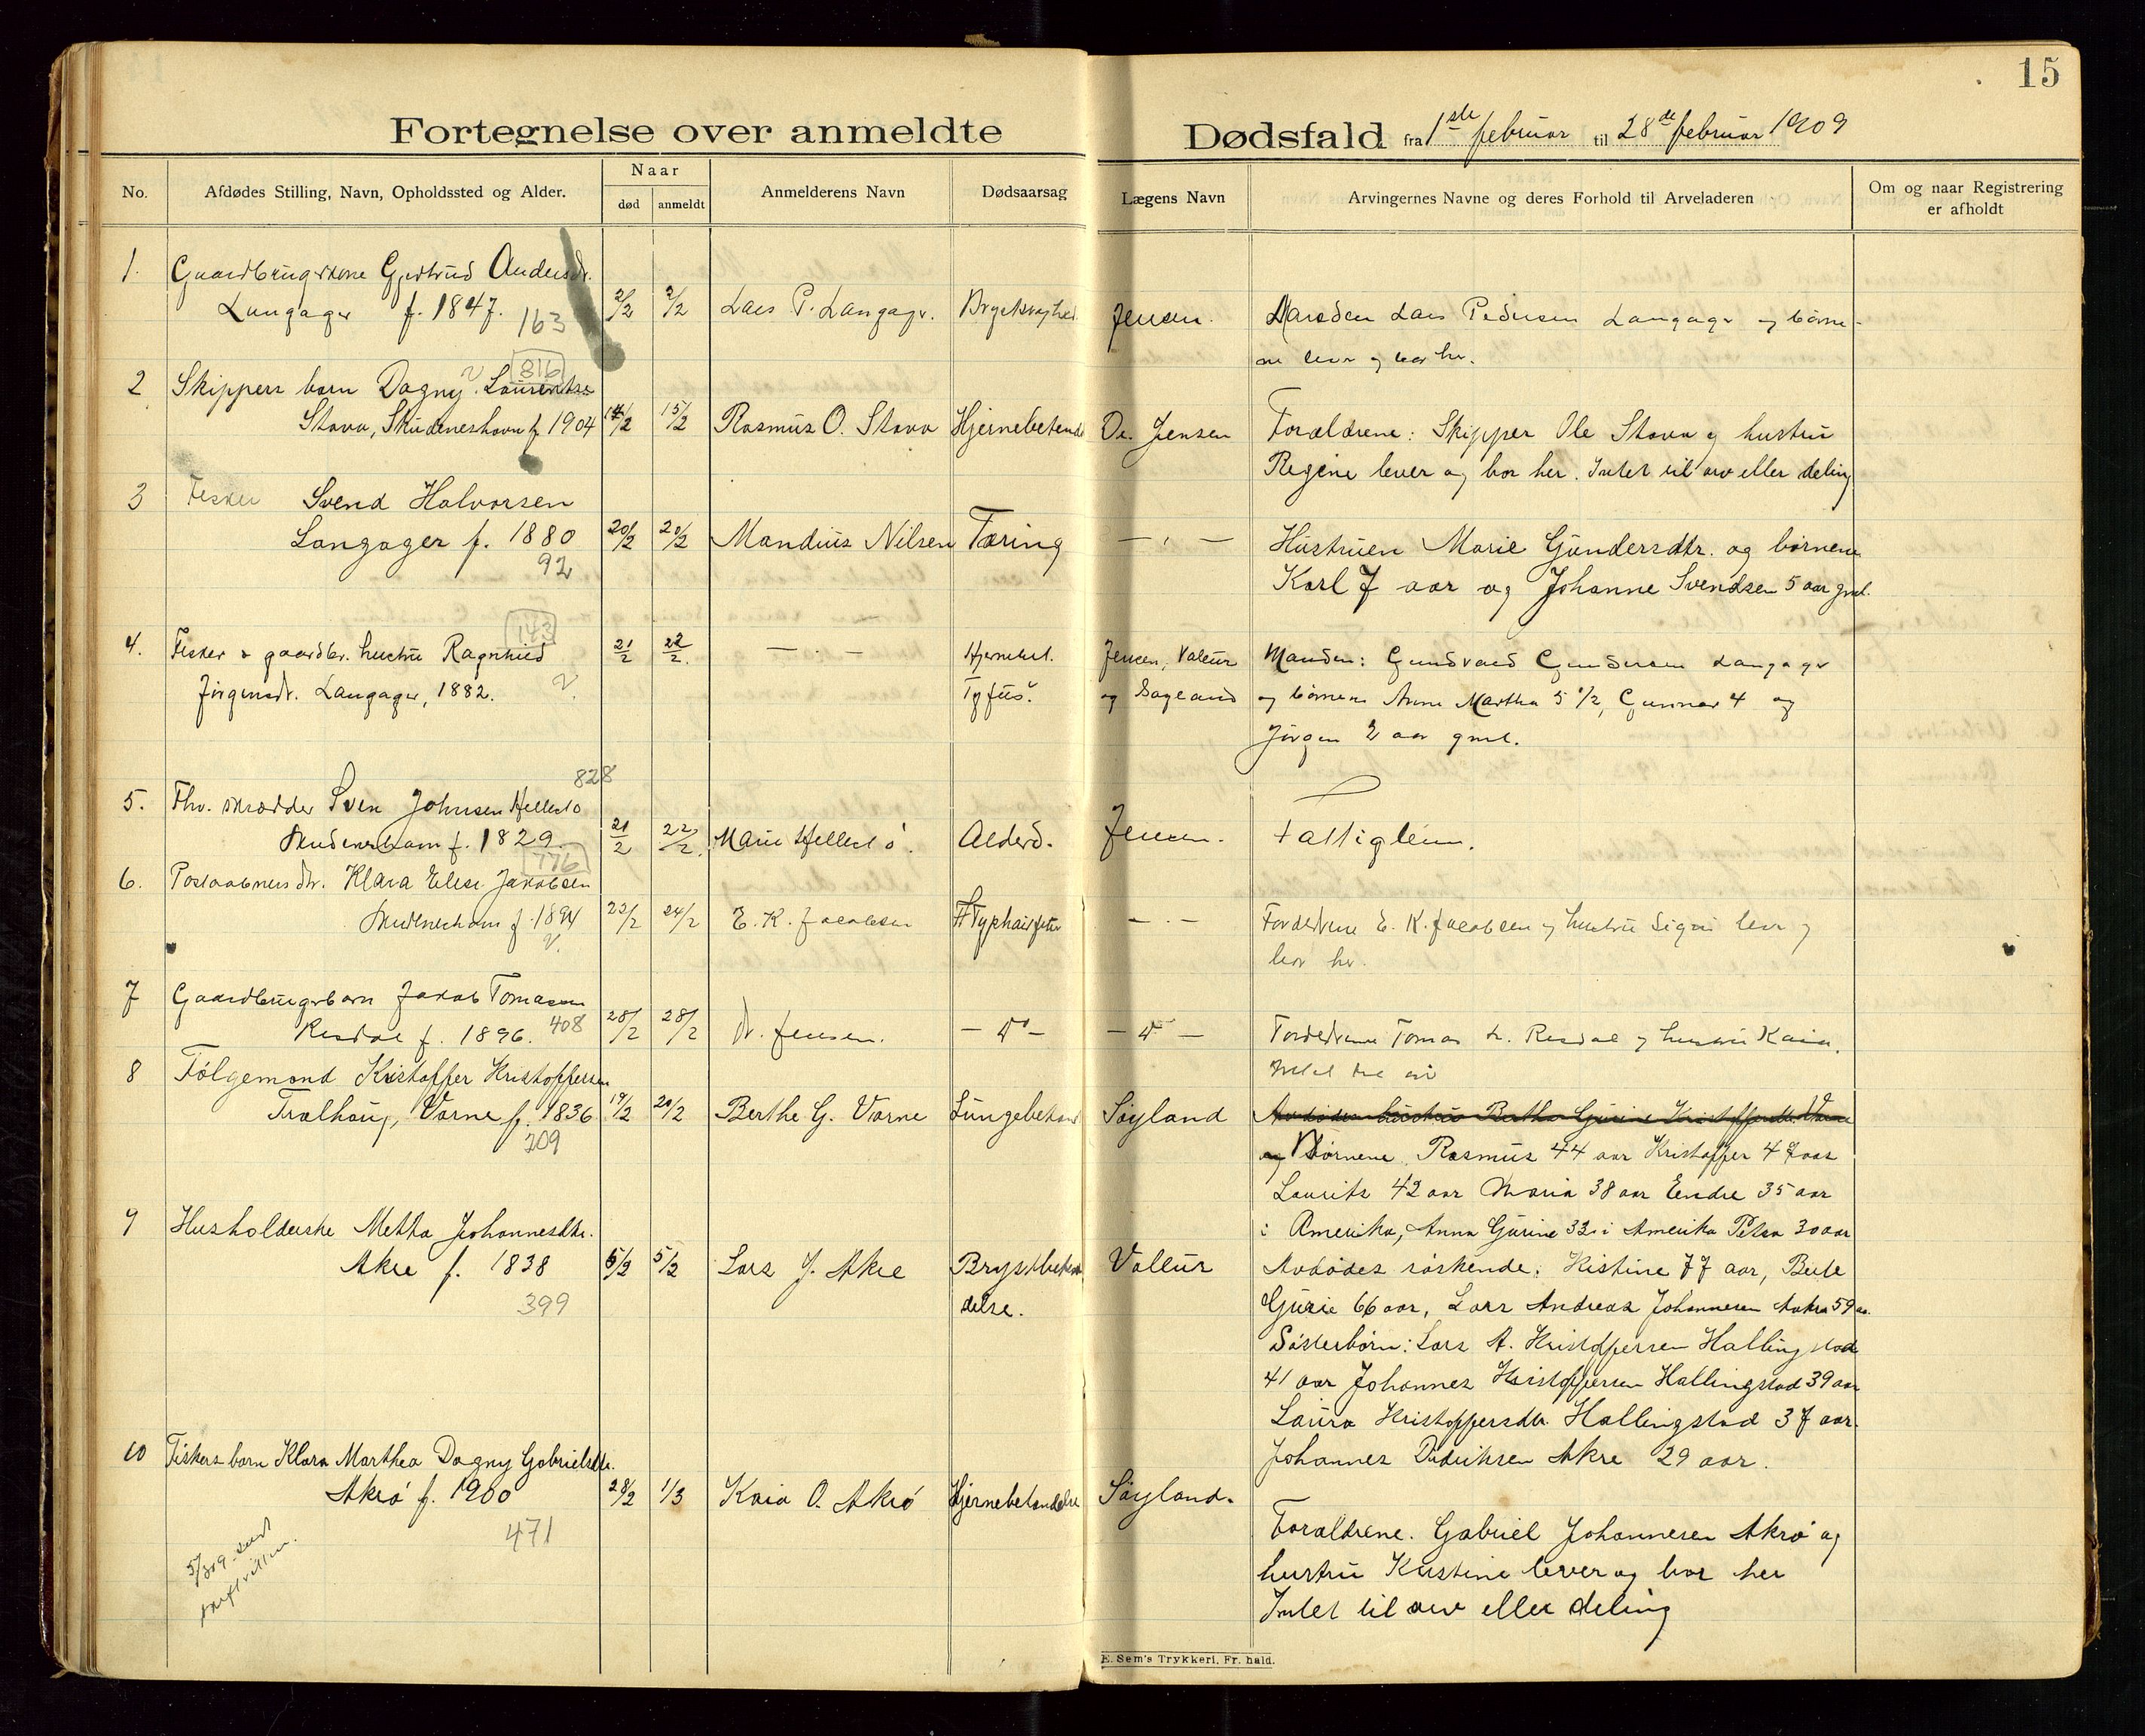 15
Fortegnelse over anmeldte Dødsfald fra 1ste februar til 28de februar 1909
No.
Afdødes Stilling, Navn, Opholdssted og Alder.
Naar
død
anmeldt
Anmelderens Navn
Dødsaarsag
Lægens Navn
Arvingernes Navne og deres Forhold til Arveladeren
Om og naar Registrering
er afholdt
1. Gaardbrugerkone Gjertrud Andersdr.
Langager f. 1847. 163 2/2 2/2 Lars P. Langagr. Jensen. Manden Lars Pedersen Langager og børne-
ne lever og bor her.
816
2 Skippers barn Dagny Laurentse
Stava, Skudeneshavn f. 1904 14/2 15/2 Rasmus O. Stava Hjernebetend Dr. Jensen Forældrene: Skipper Ole Stava og hustru
Regine lever og bor her. Intet til arv eller deling
3 Fisker Svend Halvorsen
Langager f. 1880 20/2 20/2 Mandius Nilsen Tæring — " — Hustruen Marie Gundersdtr. og børnene
92 Karl 7 aar og Johanne Svendsen 5 aar gml.
143
4. Fisker & gaardbr. hustru Ragnhild 21/2 22/2 — " — Hjernebet. Jensen, Valeur Manden: Gundvald Gundersen Langager
Jørgensdr. Langager, 1882. Tyfus. og Søyland og børnene Anne Martha 5 1/2, Gunnar 4 og
Jørgen 2 aar gml.
828
5. Fhv. skrædder Sven Johnsen Hellesto
Skudeneshavn f. 1829. 21/2 22/2. Marie Hellestø. Alderd. Jensen. Fattiglem.
776
6. Postaabners dtr. Klara Elise Jakobsen
Skudeneshavn f. 1894 22/2 24/2 E. K. Jacobsen Typhoidfeber — " — Forældrene E. K. Jacobsen og hustru Sigri lever og
bor her.
7 Gaardbrugerbarn Jakob Tomasen
Risdal f. 1896. 408 28/2 28/2 Dr. Jensen. — do — — do — Forældrene Tomas Risdal og hustru
Intet til arv
8 Følgemand Kristoffer Kristoffersen
Trælhaug, Varne f. 1836 19/2 20/2 Berthe G. Varne Lungebetænd Søyland Avdødes hustru Berthe Gurine Kristoffersdtr. Varne
209 og Børnene Rasmus 44 aar Kristoffer 47 aar
Laurits 42 aar Maria 38 aar Endre 35 aar
i Amerika, Anna Gurine 33 i Amerika Petra 30 aar
9 Husholderske Metha Johannesdtr.
Akre f. 1838 5/2 5/2 Lars J. Akre Brystbetæn Valeur Avdødes søskende: Kistine 77 aar, Berte
399 delse. Gurie 66 aar, Lars Andreas Johannesen Aakra 59 aar
Søsterbørn: Lars A. Kristoffersen Hallingstad
41 aar Johannes Kristoffersen Hallingstad 39 aar
Laura Kristoffersdtr. Hallingstad 37 aar.
Johannes Didriksen Akre 29 aar.
10 Fiskers barn Klara Marthea Dagny Gabrielsdtr.
Akrø f. 1900 28/2 1/3 Kaia O. Akrø Hjernebetændelse Søyland.
471 Forældrene. Gabriel Johannesen Akrø og
hustru Kristine lever og bor her
Intet til arv eller deling
5/3 09 sendt
skifteretten.
E. Sem's Trykkeri, Fr. hald.